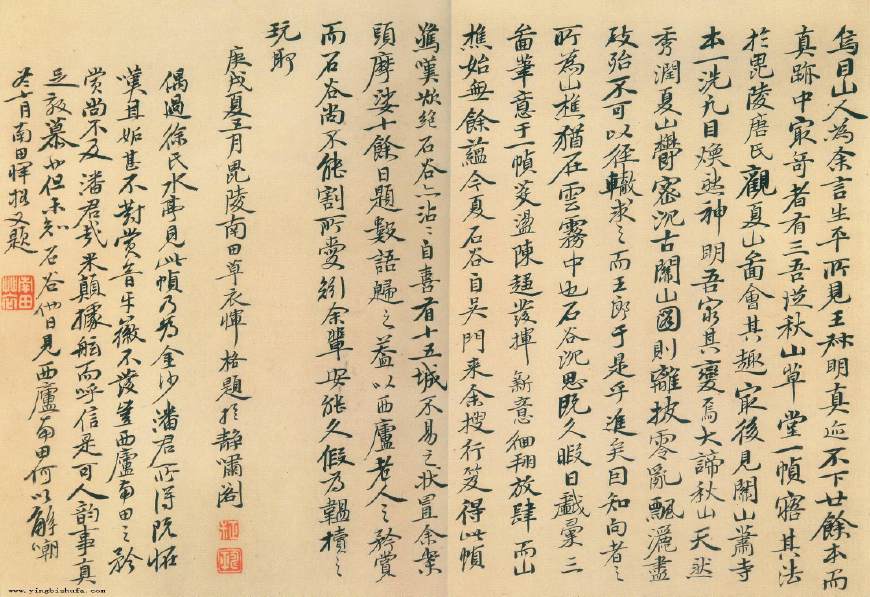 烏目山人為余言生平所見王叔明真迹不下廿餘本而
真跡中最奇者有三吾從秋山草堂一幀悟其法
於毘陵唐氏觀夏山圖會其趣最後見關山蕭寺
本一洗凡目煥然神明吾窮其變焉大諦秋山天然
秀潤夏山鬱密沉古關山圖則離披零亂飄灑盡
致殆不可以徑轍求之而王郎于是乎進矣因知向者之
所為山樵猶在雲霧中也石谷沉思既久暇日戲彙三
圖筆意于一幀滌盪陳趨發揮新意徊翔放肆而山
樵始無餘蘊今夏石谷自吳門來余搜行笈得此幀
驚嘆欲絕石谷亦沾沾自喜有十五城不易之狀置余案
頭摩挲十餘日題數語歸之蓋以西廬老人之矜賞
而石谷尚不能割所愛矧余輩安能久假為韞櫝之
玩耶
庚戌夏五月毘陵南田草衣惲格題於靜嘯閣
偶過徐氏水亭見此幀乃為金沙潘君所得既怪
嘆且妬甚不對賞音牙徽不發豈西廬南田之矜
賞尚不及潘君哉米顛據舷而呼信是可人韻事真
足效慕也但未知石谷他日見西廬南田何以解嘲
冬十月南田惲格又題
www.yingbishufa.com